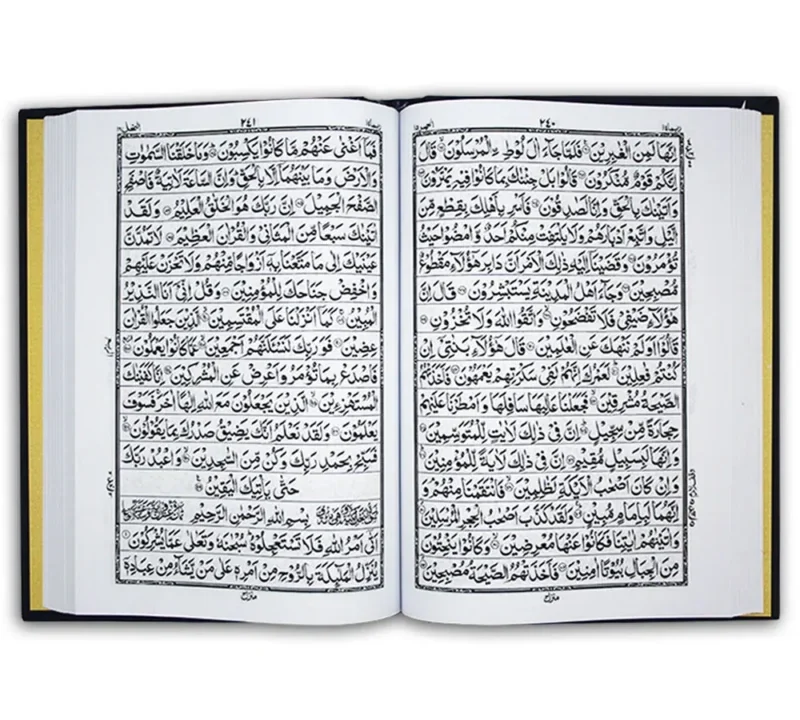 ٢٤٠
اِنَّهَا لَمِنَ الْغٰبِرِيْنَ ۝ فَلَمَّا جَآءَ اٰلَ لُوْطِ ِۨالْمُرْسَلُوْنَ ۝ قَالَ
اِنَّكُمْ قَوْمٌ مُّنْكَرُوْنَ ۝ قَالُوْا بَلْ جِئْنٰكَ بِمَا كَانُوْا فِيْهِ يَمْتَرُوْنَ ۝
وَاَتَيْنٰكَ بِالْحَقِّ وَاِنَّا لَصٰدِقُوْنَ ۝ فَاَسْرِ بِاَهْلِكَ بِقِطْعٍ مِّنَ
الَّيْلِ وَاتَّبِعْ اَدْبَارَهُمْ وَلَا يَلْتَفِتْ مِنْكُمْ اَحَدٌ وَّامْضُوْا حَيْثُ
تُؤْمَرُوْنَ ۝ وَقَضَيْنَآ اِلَيْهِ ذٰلِكَ الْاَمْرَ اَنَّ دَابِرَ هٰٓؤُلَآءِ مَقْطُوْعٌ
مُّصْبِحِيْنَ ۝ وَجَآءَ اَهْلُ الْمَدِيْنَةِ يَسْتَبْشِرُوْنَ ۝ قَالَ اِنَّ
هٰٓؤُلَآءِ ضَيْفِيْ فَلَا تَفْضَحُوْنِ ۝ وَاتَّقُوا اللّٰهَ وَلَا تُخْزُوْنِ ۝
قَالُوْٓا اَوَلَمْ نَنْهَكَ عَنِ الْعٰلَمِيْنَ ۝ قَالَ هٰٓؤُلَآءِ بَنٰتِيْٓ اِنْ
كُنْتُمْ فٰعِلِيْنَ ۝ لَعَمْرُكَ اِنَّهُمْ لَفِيْ سَكْرَتِهِمْ يَعْمَهُوْنَ ۝ فَاَخَذَتْهُمُ
الصَّيْحَةُ مُشْرِقِيْنَ ۝ فَجَعَلْنَا عَالِيَهَا سَافِلَهَا وَاَمْطَرْنَا عَلَيْهِمْ
حِجَارَةً مِّنْ سِجِّيْلٍ ۝ اِنَّ فِيْ ذٰلِكَ لَاٰيٰتٍ لِّلْمُتَوَسِّمِيْنَ ۝
وَاِنَّهَا لَبِسَبِيْلٍ مُّقِيْمٍ ۝ اِنَّ فِيْ ذٰلِكَ لَاٰيَةً لِّلْمُؤْمِنِيْنَ ۝
وَاِنْ كَانَ اَصْحٰبُ الْاَيْكَةِ لَظٰلِمِيْنَ ۝ فَانْتَقَمْنَا مِنْهُمْ وَ
اِنَّهُمَا لَبِاِمَامٍ مُّبِيْنٍ ۝ وَلَقَدْ كَذَّبَ اَصْحٰبُ الْحِجْرِ الْمُرْسَلِيْنَ ۝
وَاٰتَيْنٰهُمْ اٰيٰتِنَا فَكَانُوْا عَنْهَا مُعْرِضِيْنَ ۝ وَكَانُوْا يَنْحِتُوْنَ
مِنَ الْجِبَالِ بُيُوْتًا اٰمِنِيْنَ ۝ فَاَخَذَتْهُمُ الصَّيْحَةُ مُصْبِحِيْنَ ۝
٢٤١
فَمَآ اَغْنٰى عَنْهُمْ مَّا كَانُوْا يَكْسِبُوْنَ ۝ وَمَا خَلَقْنَا السَّمٰوٰتِ
وَالْاَرْضَ وَمَا بَيْنَهُمَآ اِلَّا بِالْحَقِّ وَاِنَّ السَّاعَةَ لَاٰتِيَةٌ فَاصْفَحِ
الصَّفْحَ الْجَمِيْلَ ۝ اِنَّ رَبَّكَ هُوَ الْخَلّٰقُ الْعَلِيْمُ ۝ وَلَقَدْ
اٰتَيْنٰكَ سَبْعًا مِّنَ الْمَثَانِيْ وَالْقُرْاٰنَ الْعَظِيْمَ ۝ لَا تَمُدَّنَّ
عَيْنَيْكَ اِلٰى مَا مَتَّعْنَا بِهٖٓ اَزْوَاجًا مِّنْهُمْ وَلَا تَحْزَنْ عَلَيْهِمْ
وَاخْفِضْ جَنَاحَكَ لِلْمُؤْمِنِيْنَ ۝ وَقُلْ اِنِّيْٓ اَنَا النَّذِيْرُ
الْمُبِيْنُ ۝ كَمَآ اَنْزَلْنَا عَلَى الْمُقْتَسِمِيْنَ ۝ الَّذِيْنَ جَعَلُوا الْقُرْاٰنَ
عِضِيْنَ ۝ فَوَرَبِّكَ لَنَسْـَٔلَنَّهُمْ اَجْمَعِيْنَ ۝ عَمَّا كَانُوْا يَعْمَلُوْنَ ۝
فَاصْدَعْ بِمَا تُؤْمَرُ وَاَعْرِضْ عَنِ الْمُشْرِكِيْنَ ۝ اِنَّا كَفَيْنٰكَ
الْمُسْتَهْزِءِيْنَ ۝ الَّذِيْنَ يَجْعَلُوْنَ مَعَ اللّٰهِ اِلٰهًا اٰخَرَ فَسَوْفَ
يَعْلَمُوْنَ ۝ وَلَقَدْ نَعْلَمُ اَنَّكَ يَضِيْقُ صَدْرُكَ بِمَا يَقُوْلُوْنَ ۝
فَسَبِّحْ بِحَمْدِ رَبِّكَ وَكُنْ مِّنَ السّٰجِدِيْنَ ۝ وَاعْبُدْ رَبَّكَ
حَتّٰى يَاْتِيَكَ الْيَقِيْنُ ۝
بِسْمِ اللّٰهِ الرَّحْمٰنِ الرَّحِيْمِ
اَتٰٓى اَمْرُ اللّٰهِ فَلَا تَسْتَعْجِلُوْهُ سُبْحٰنَهٗ وَتَعٰلٰى عَمَّا يُشْرِكُوْنَ ۝
يُنَزِّلُ الْمَلٰٓئِكَةَ بِالرُّوْحِ مِنْ اَمْرِهٖ عَلٰى مَنْ يَّشَآءُ مِنْ عِبَادِهٖٓ